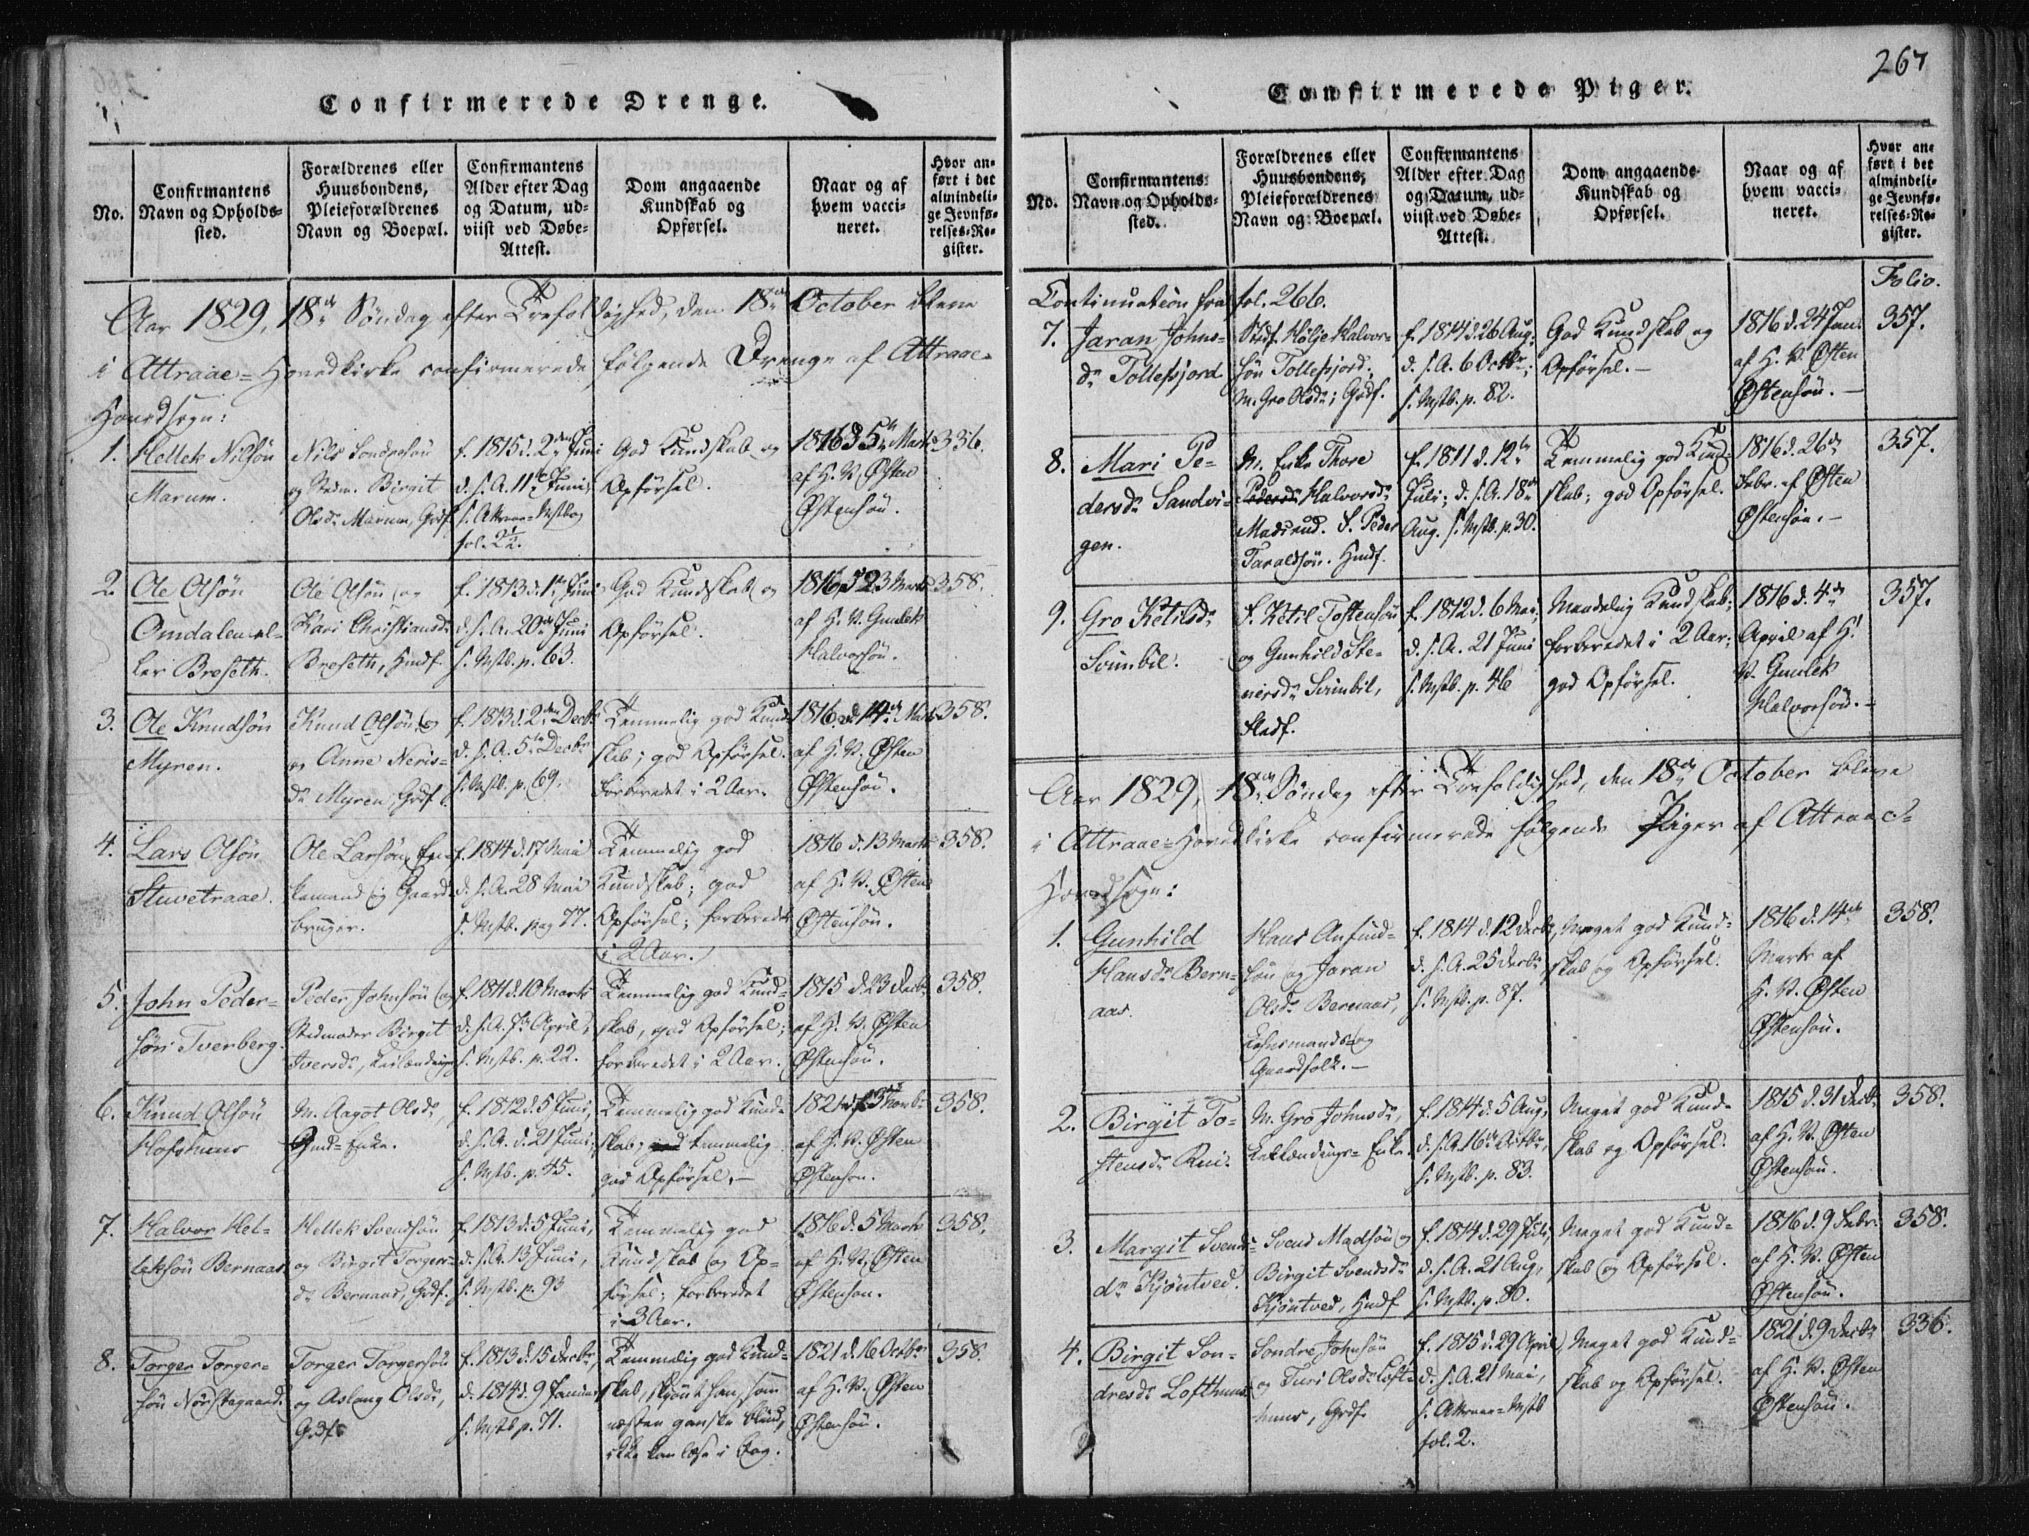 Confirmerede Drenge.
No.
Confirmantens
Navn og Opholds-
sted.
Forældrenes eller
Huusbondens,
Pleieforældrenes
Navn og Boepæl.
Confirmantens
Alder efter Dag
og Datum, ud-
viist ved Døbe-
Attest.
Dom angaaende
Kundskab og
Opførsel.
Naar og af
hvem vacci-
neret.
Hvor an-
ført i det
almindeli-
ge Jevnfø-
relses-Re-
gister.
Aar 1829, 18de Søndag efter Trefoldighed, den 18de October bleve
i Attraae-Hovedkirke confirmerede følgende Drenge af Attraae-
Hovedsogn:
1.
Hellek Nilsøn
Marum.
Nils Sondresøn
og Stedm. Birgit
Olsdr Marum, Grdf.
f. 1815 d. 2den Juni
d. s. A. 11te Juni,
s. Attraae-Mstbog
fol. 2½.
God Kundskab og
Opførsel.
1816 d 5te Marts
af H. V. Østen
Østensøn.
336.
2.
Ole Olsøn
Omdalen el-
ler Breseth.
Ole Olsøn og
Kari Christiansdr
Breseth, Hmdf.
f. 1813 d. 1te Juni
d. s. A. 20de Juni
s. Mstb. p. 63.
God Kundskab og
Opførsel.
1816 d 23 Marts
af H. V. Gunlek
Halvorsøn.
358.
3.
Ole Knudsøn
Myren.
Knud Olsøn
og Anne Neris-
dr Myren, Grdf.
f. 1813 d. 2den Decbr
d. s. A. 5te Decbr
s. Mstb. p. 69.
Temmelig god Kund-
skab; god Opførsel.
forberedet i 2 Aar.
1816 d 14de Marts
af H. V. Østen
Østensøn.
358.
4.
Lars Olsøn
Stuvetraae.
Ole Larsøn, En-
kemand og Gaard-
bruger.
f. 1814 d. 17 Mai
d. s. A. 28 Mai
s. Mstb. pag 77.
Temmelig god
Kundskab; god
Opførsel; forberedet
i 2 Aar.
1816 d. 13 Marts
af H. V. Østen
Østensøn.
358.
5.
John Peder-
søn Tverberg.
Peder Johnsøn og
Stedmoder Birgit
Iversdr,
f. 1811 d. 10 Marts
d. s. A. 7de April,
s. Mstb. p. 22.
Temmelig god Kund-
skab, god Opførsel;
forberedet i 2 Aar.
1815 d. 23 Decbr
af H. V. Østen
Østensøn.
358.
6.
Knud Olsøn
Hofshuus
M. Aagot Olsdr,
Hmd-Enke.
f. 1812 d. 5 Juni,
d. s. A. d. 21 Juni,
s. Mstb. p. 45.
Temmelig god Kund-
skab; temmelig
god Opførsel.—
1821 d. Novbr
af H. V. Østen
Østensøn.
358.
7.
Halvor Hel-
leksøn Bernaas
Hellek Svendsøn
og Birgit Torgers-
dr Bernaas, Grdf.
f. 1813 d. 5 Juni,
d. s. A. 13 Juni,
s. Mstb. p. 93
Temmelig god
Kundskab og Op-
førsel; forberedet
i 3 Aar.
1816 d. 5 Marts
af H. V. Østen
Østensøn.
358.
8.
Torger Torger-
søn Nørstegaard.
Torger Torgersøn
og Aslaug Olsdr,
Grdf.
f. 1813 d. 15 Decbr,
d. 1814 d. 9 Januar
s. Mstb p. 71.
Temmelig god Kund-
skab, skjønt han, som
næsten ganske blind,
ikke kan læse i Bog.
1821 d. 16 Octbr
af H. V. Østen
Østensøn.
358.
267
Confirmerede Piger.
No.
Confirmantens
Navn og Opholds-
sted.
Forældrenes eller
Huusbondens,
Pleieforældrenes
Navn og Boepæl.
Confirmantens
Alder efter Dag
og Datum, ud-
viist ved Døbe-
Attest.
Dom angaaende
Kundskab og
Opførsel.
Naar og af
hvem vacci-
neret.
Hvor an-
ført i det
almindeli-
ge Jevnfø-
relses-Re-
gister.
Folio.
Continuation fra fol. 266.
7.
Jaran Johns-
dr Tollefsjord
Stdf. Kølje Halvor-
søn Tollefsjord;
M. Gro Olsdr; Grdf.
f. 1814 d. 26 Aug.
d. s. A. 6 Octbr;
s. Mstb. p. 82.
God Kundskab og
Opførsel.—
1816 d. 24 Jan.
af H. V. Østen
Østensøn.—
357.
8.
Mari Pe-
dersdr Sandvi-
gen.
M. Enke Thore
Pedersdr Halvorsdr
Madsrud. F. Peder
Taraldsøn. Hmdf.
f. 1811 d. 12te
Juli; d. s. A. 18de
Aug. s. Mstb. p. 30.
Temmelig god Kund-
skab; god Opførsel.
1816 d. 26de
Febr. af Østen
Østensøn.—
357.
9.
Gro Ketilsdr
Svimbil.
F. Ketil Tostensøn
og Gunhild Ste-
nersdr Svimbil,
f. 1812 d. 6 Mai,
d. s. A. 21 Juni
s. Mstb. p. 46
Maadelig Kundskab;
forberedet i 2 Aar;
god Opførsel.
1816 d. 4de
April af H.
V. Gunlek
Halvorsøn.—
357.
Aar 1829, 18de Søndag efter Trefoldighed, den 18de October bleve
i Attraae-Hovedkirke confirmerede følgende Piger af Attraae-
Hovedsogn:
1.
Gunhild
Hansdr Bern-
aas.
Hans Anfind-
søn og Jaran
Olsdr Bernaas,
Lehnsmands- og
Gaardfolk.—
f. 1814 d. 12 Decbr,
d. s. A. 25 Decbr
s. Mstb. p. 87.
Meget god Kund-
skab og Opførsel.
1816 d. 14de
Marts af
H. V. Østen
Østensøn.
358.
2.
Birgit To-
stensdr Rui.
M. Gro Johnsdr,
Enke.
f. 1814 d. 5 Aug,
d. s. A. 16de Octbr,
s. Mstb. p. 83.
Meget god Kund-
skab og Opførsel.
1815 d. 31 Decbr
af H. V. Østen
Østensøn.
358.
3.
Margit Svends-
dr Kjöntved.
Svend Madsøn og
Birgit Svendsdr
Kjöntved, Hmdf
f. 1814 d. 29 Juli,
d. s. A. 21 Aug,
s. Mstb. p. 80.
Meget god Kund-
skab og Opførsel.
1816 d. 9 Febr.
af H. V. Østen
Østensøn.
358.
4.
Birgit Son-
dresdr Lofthuus
Sondre Johnsøn
og Turi Olsdr Loft-
huus, Grdf.
f. 1815 d. 29 April,
d. s. A. 21 Mai,
s. Attraae-Mstb
fol. 2.
Meget god Kund-
skab og Opførsel.
1821 d. 9 Decbr
af H. V. Østen
Østensøn.
336.